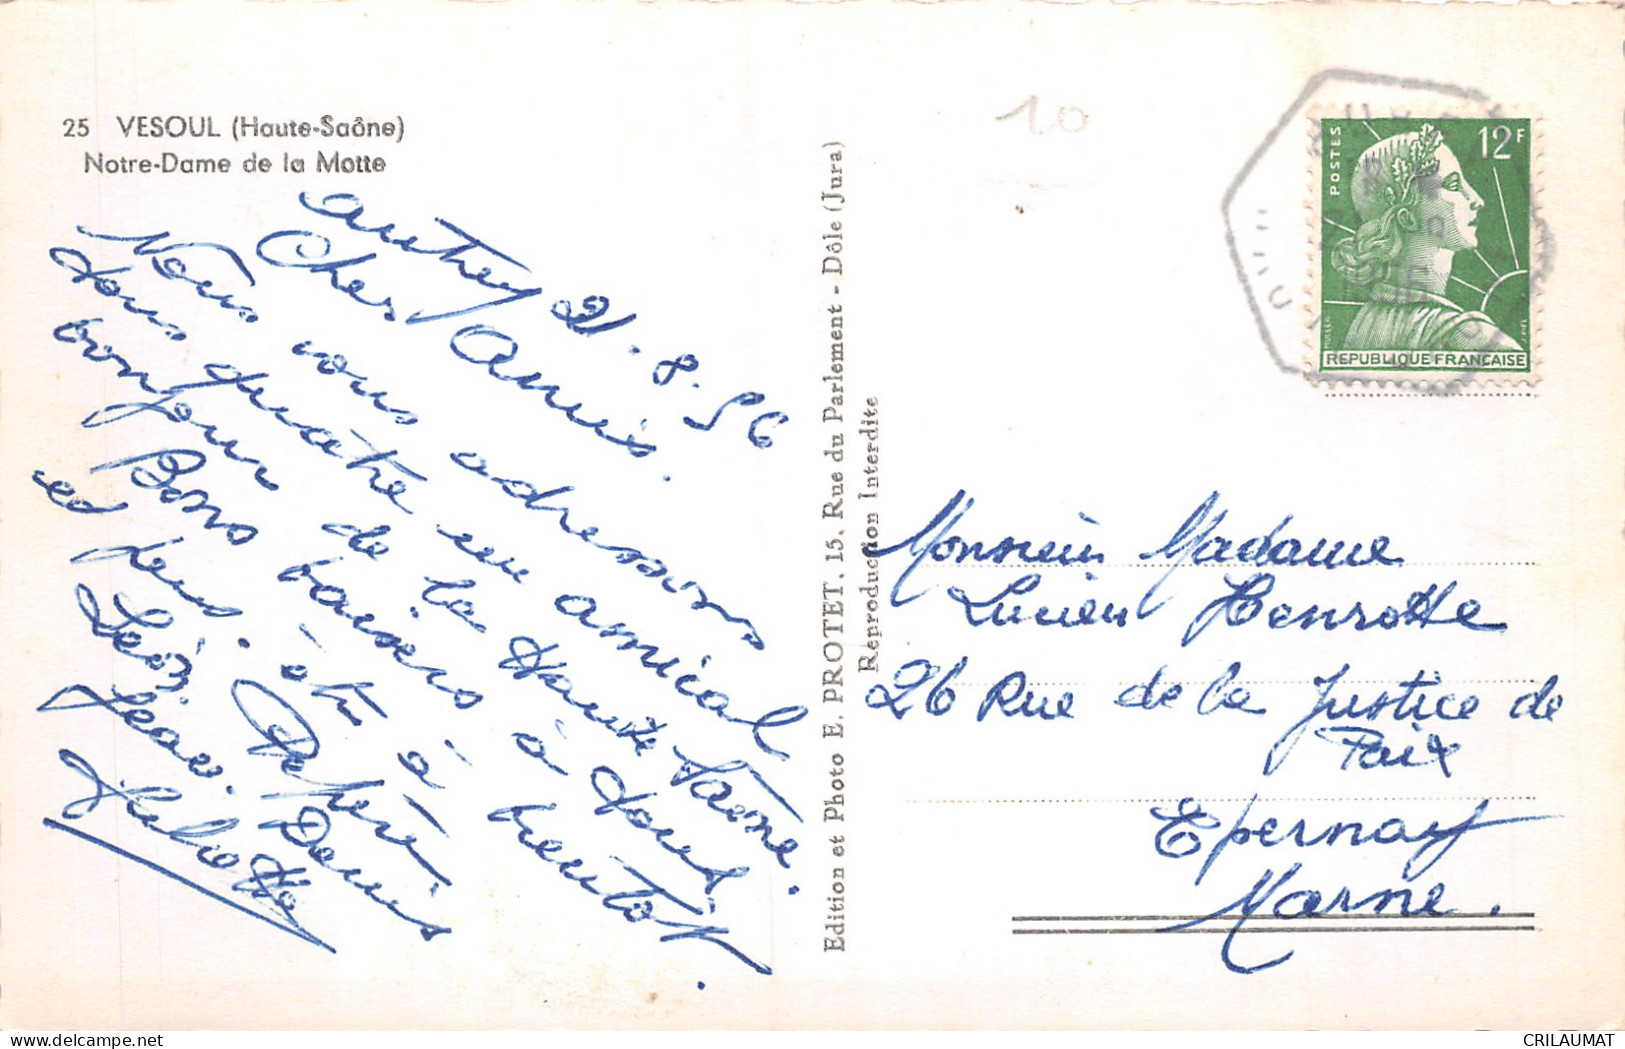 25 VESOUL (Haute-Saône)
Notre-Dame de la Motte
Autrey 21.8.56
Chers Amis.
Nous vous adressons
tous quatre un amical
bonjour de la Haute Saône.
Bons baisers à tous
et deux. à
bientôt.
Léon
Denis
Juliette
Edition et Photo E. PROTET, 15, Rue du Parlement - Dôle (Jura)
Reproduction Interdite
10
POSTES
12F
REPUBLIQUE FRANÇAISE
Monsieur Madame
Lucien Henrotte
26 Rue de la Justice de
Paix
Epernay
Marne.
CRILAUMAT